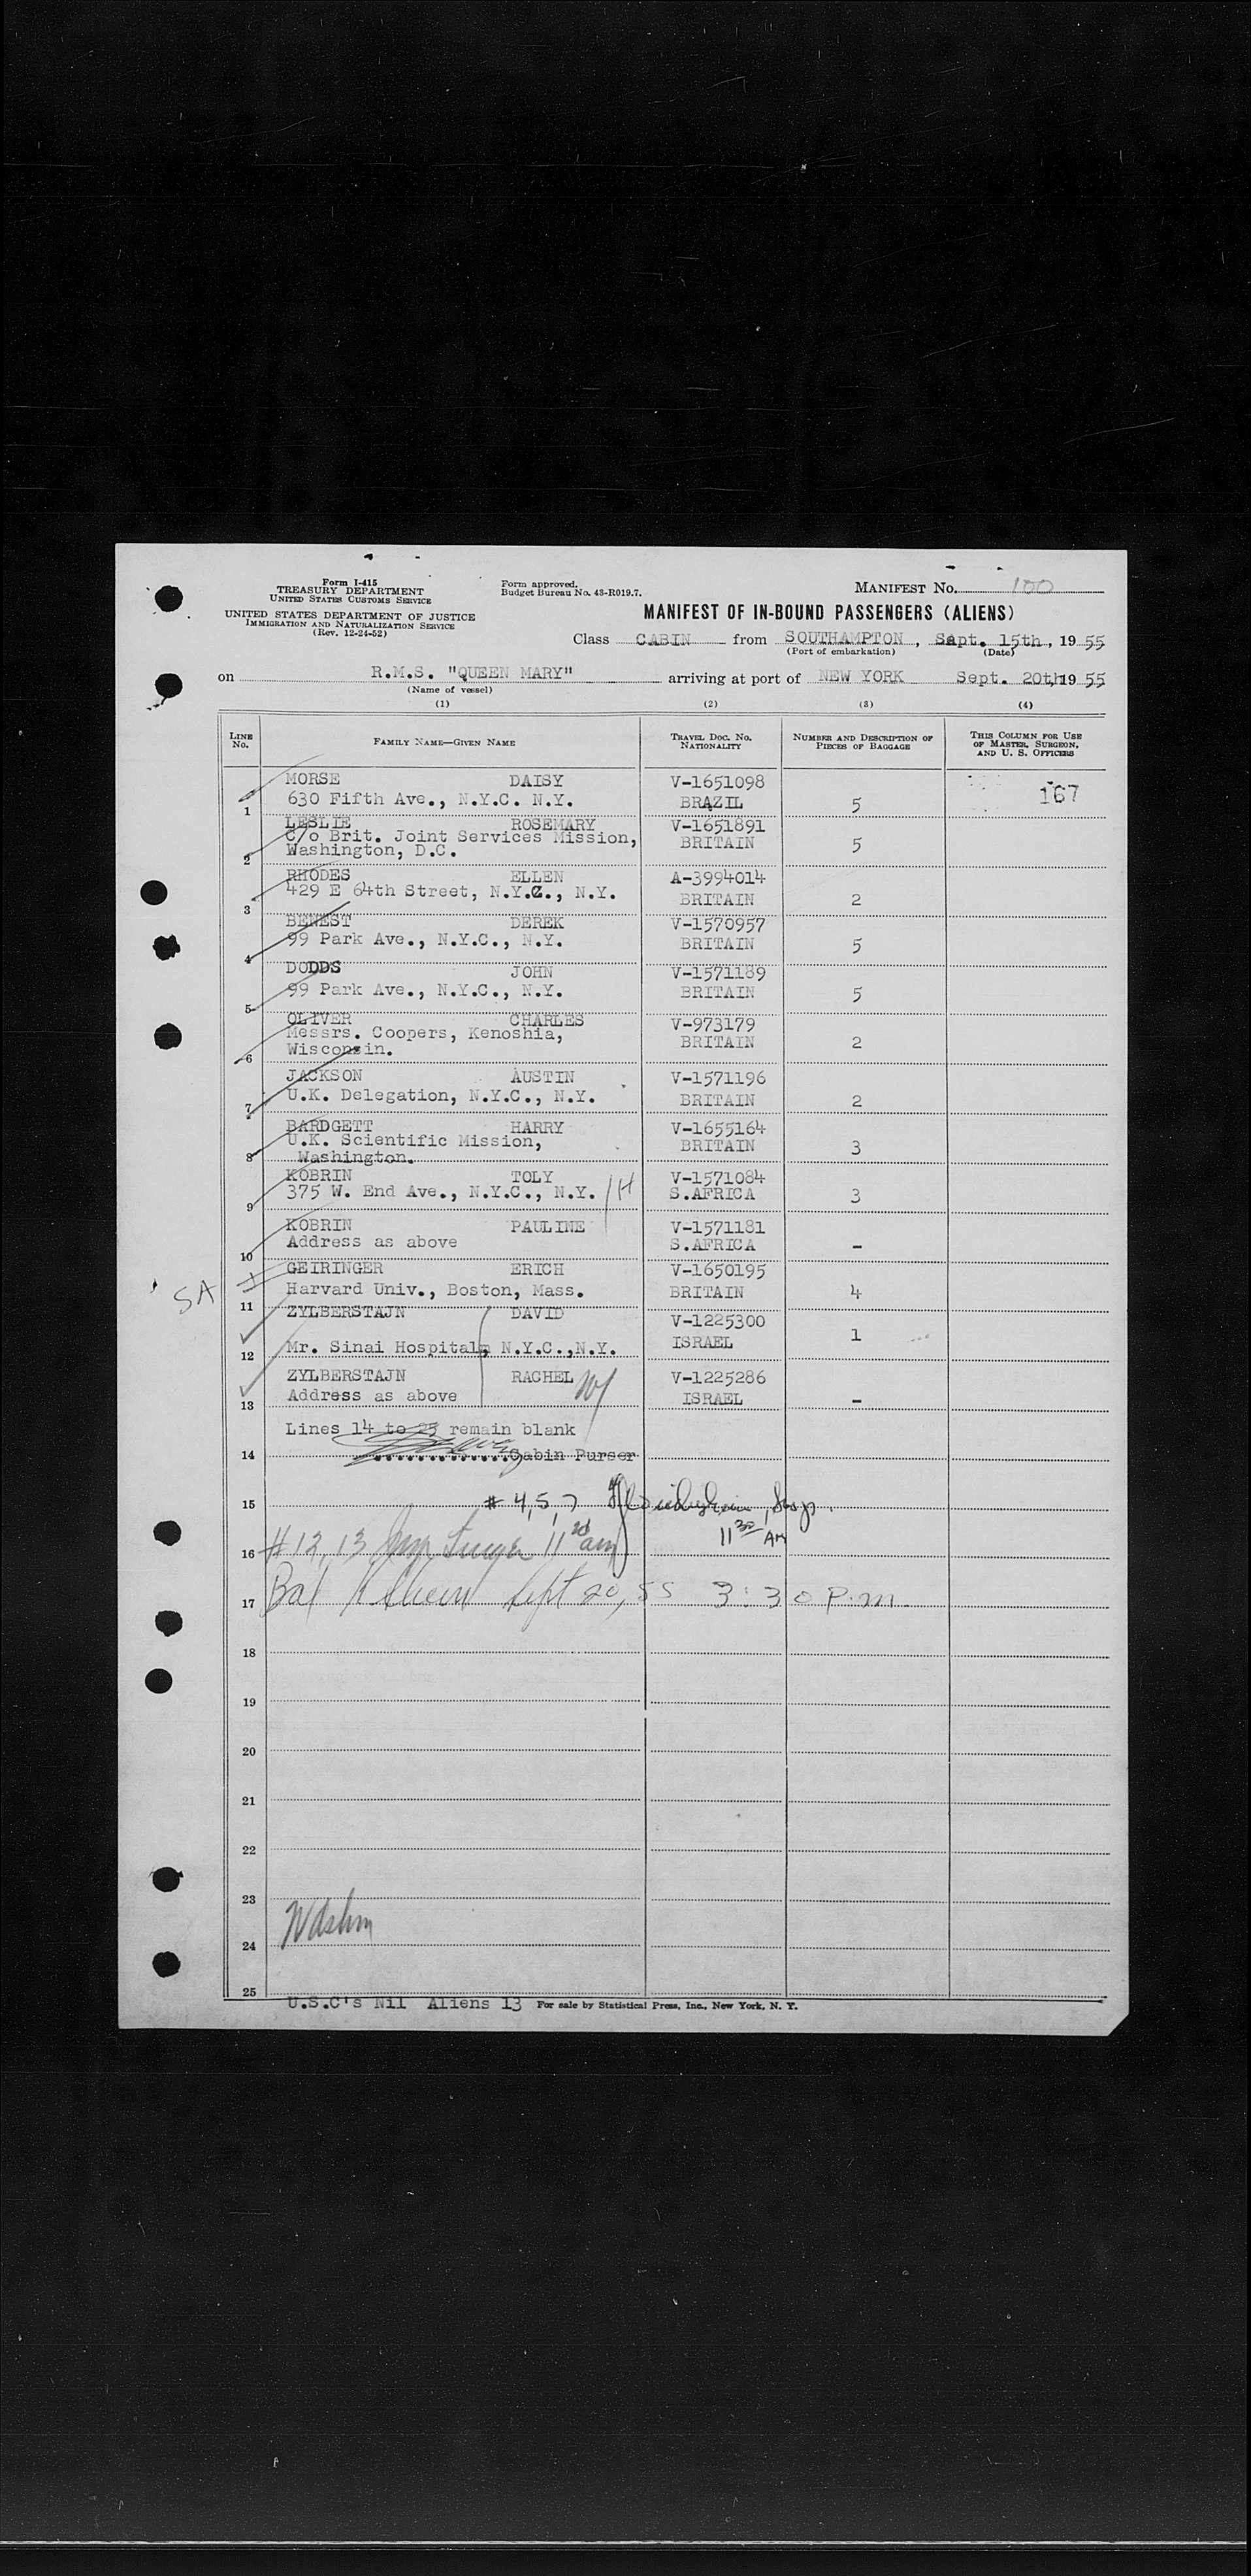 Form I-415
TREASURY DEPARTMENT
UNITED STATES CUSTOMS SERVICE
UNITED STATES DEPARTMENT OF JUSTICE
IMMIGRATION AND NATURALIZATION SERVICE
(Rev. 12-24-52)
Form approved.
Budget Bureau No. 43-R019.7.
MANIFEST NO. 100
MANIFEST OF IN-BOUND PASSENGERS (ALIENS)
Class CABIN from SOUTHAMPTON, Sept. 15th, 1955
(Port of embarkation) (Date)
on R.M.S. "QUEEN MARY" arriving at port of NEW YORK Sept. 20th 1955
(Name of vessel)
(1) (2) (3) (4)
LINE No. FAMILY NAME—GIVEN NAME TRAVEL DOC. NO. NATIONALITY NUMBER AND DESCRIPTION OF PIECES OF BAGGAGE THIS COLUMN FOR USE OF MASTER, SURGEON, AND U. S. OFFICERS
MORSE DAISY V-1651098 167
1 630 Fifth Ave., N.Y.C. N.Y. BRAZIL 5
LESLIE ROSEMARY V-1651891
C/o Brit. Joint Services Mission, BRITAIN 5
2 Washington, D.C.
RHODES ELLEN A-3994014
3 429 E 64th Street, N.Y.C., N.Y. BRITAIN 2
BENEST DEREK V-1570957
4 99 Park Ave., N.Y.C., N.Y. BRITAIN 5
DODDS JOHN V-1571189
5 99 Park Ave., N.Y.C., N.Y. BRITAIN 5
OLIVER CHARLES V-973179
Messrs. Coopers, Kenoshia, BRITAIN 2
6 Wisconsin.
JACKSON AUSTIN V-1571196
7 U.K. Delegation, N.Y.C., N.Y. BRITAIN 2
BARDGETT HARRY V-1655164
U.K. Scientific Mission, BRITAIN 3
8 Washington.
KOBRIN TOLY V-1571084
9 375 W. End Ave., N.Y.C., N.Y. S.AFRICA 3
KOBRIN PAULINE V-1571181
10 Address as above S.AFRICA -
GEIRINGER ERICH V-1650195
SA 11 Harvard Univ., Boston, Mass. BRITAIN 4
ZYLBERSTAJN DAVID V-1225300
12 Mr. Sinai Hospital, N.Y.C.,N.Y. ISRAEL 1
ZYLBERSTAJN RACHEL V-1225286
13 Address as above ISRAEL -
Lines 14 to 25 remain blank
14 Cabin Purser
15 # 4, 5, 7 Insp.
11 30 AM
16 # 12, 13 11 am
17 Bal Sept 20, 55 3:30 P.m.
18
19
20
21
22
23
24
25
U.S.C's Nil Aliens 13 For sale by Statistical Press, Inc., New York, N. Y.